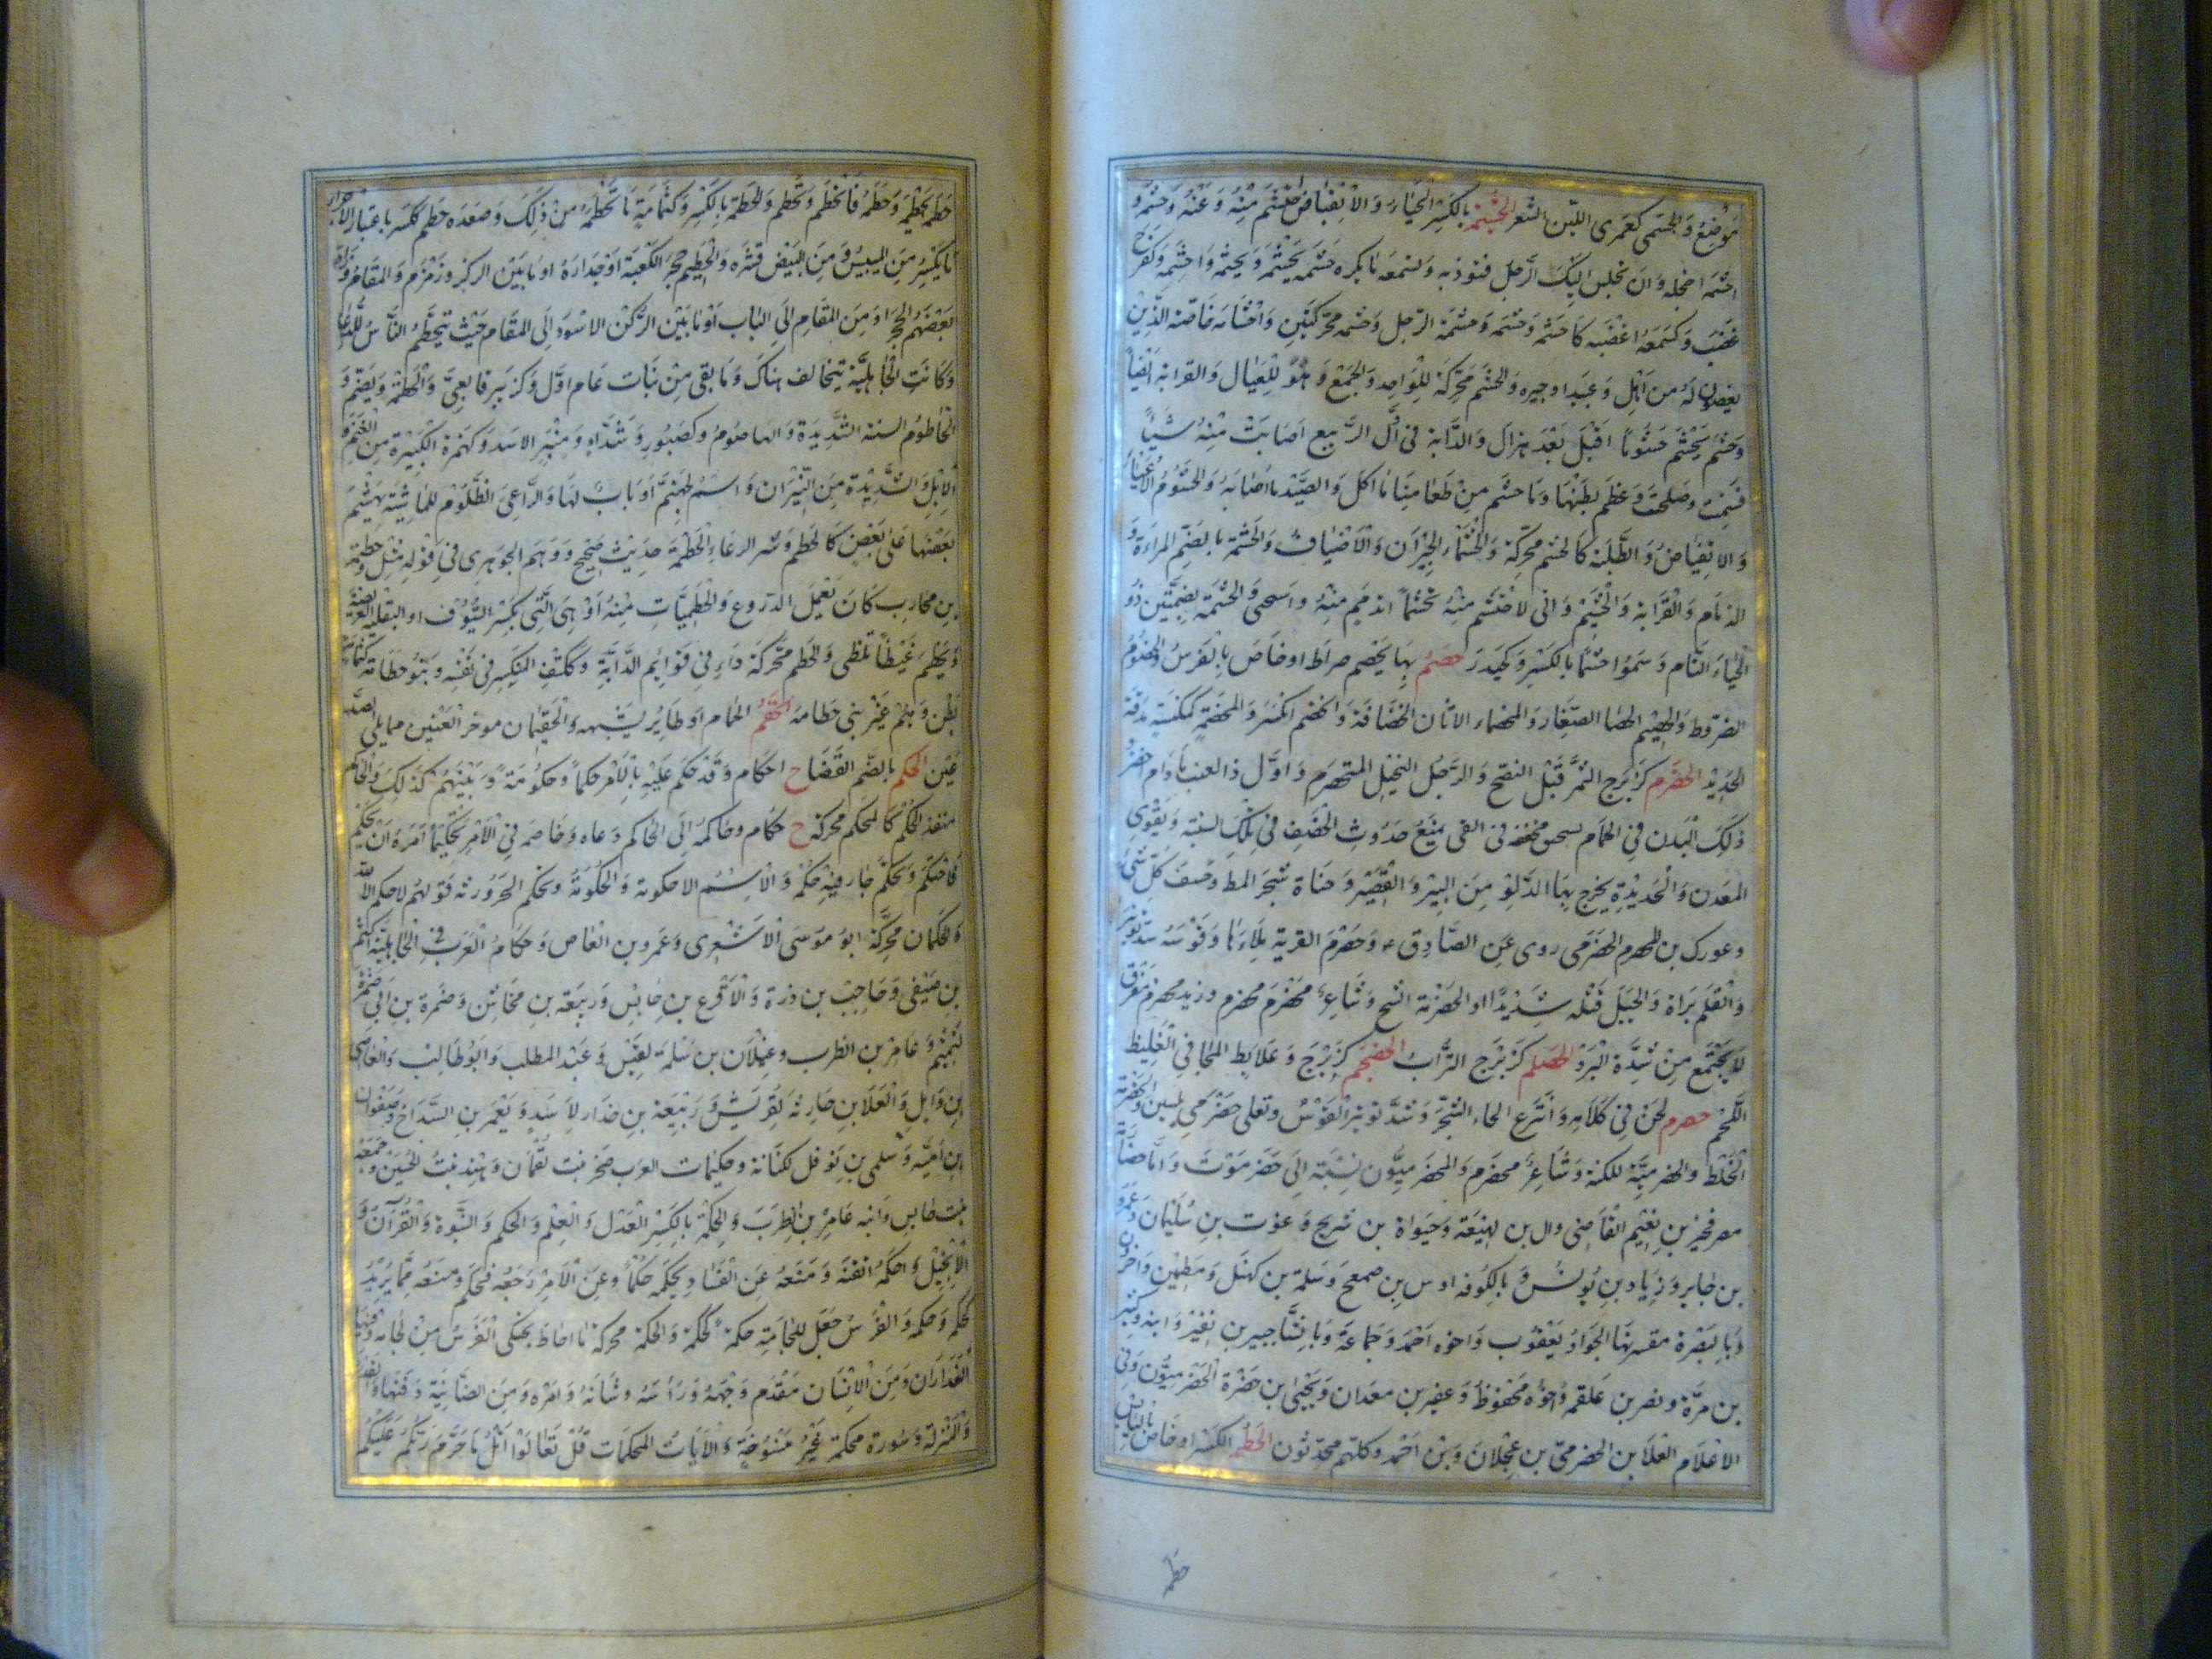 مَوْضِعٌ وَالحَشَمى كَعَمَرى اللبّن الشعر الحِشْمَةُ بالكَسْرِ الحَيَاءُ وَالانْقِبَاضُ احْتَشَمَ مِنْهُ وَعَنْهُ وَحَشَمَهُ وَ
احشَمَه اخجله وَان يجلس اِلَيْكَ الرَّجُل فتوذيه وَتسمعه مَا يكره حَشَمَه يَحْشِمُه وَيحشمه وَاحشمه وَكفَرِحَ
غَضِبَ وَكَسَمِعَه اغضَبَه كَاحشَمَه وَحَشَّمَه وَحشمة الرّجل وَحشمه محرّكتين وَاحْشَامه خَاصّته الّذِيْن
يغضبون لَهُ مِن اَهْلٍ وَعَبيد اوجيره وَالحَشَم مَحَرّكَة لِلْوَاحِد وَالجَمْع وَهُوَ لِلْعِيَال وَالقرابة اَيْضاً
وَحَشَمَ يَحْشِم حُشُومًا اقْبَلَ بَعْدَ هزال وَالدَّابة فى اَوّل الرَّبيع اَصَابَتْ مِنْهُ شَيئًا
فَسَمِنت وصَلحَت وَعظم بَطنهَا وَمَا حشم مِنْ طَعَامِنَا مَا اكل وَالصَّيْد مَا اصَابَهُ وَالحُشُوم الاعْيَاءُ
وَالانقِبَاضُ وَالطَّلبَة كَالحشم محرّكة وَالحُشَمَاءُ الجِيْرَان وَالاَضْيَاف وَالحُشمَة بالضَّمِ المراءَة وَ
الذمَام وَالْقَرَابة وَالْحَشِيْم وَانّى لاحْتَشِم مِنْهُ تَحشّماً اتذمّم مِنْهُ وَاسْتحى وَالحُشُم بِضَمّتَين ذَوُو
الْحَيَاءِ التَّام وَسَمَوا حشْمًا بالكَسْرِ وَكَحَيْدَر حصَمَ بِهَا يَحْصِم ضرط اوخَاصّ بِالْفَرَسِ وَالحَصُومُ
الضروط وَالحصِيْم الحصَا الصّغَار وَالحصماء الاتان الخضّافة وَانْحَصَم انكسَر وَالمحصَمَة كَمكنسَة مِدقّة
الحَدِيْد الحِصْرِم كَزِبْرِج الثمَر قَبْل النضج وَالرّجل البَخِيل المتحصرم وَاوَّل ذا العِنَب مَادَام اخضر و
ذلِكَ الْبَدن فى الحمام بسحيق مخففه فى القى يمنع حدُوث الحَصَف فى تِلْكَ السنة وَيقوّى
المعدن وَالْحَدِيْدة يخرج بِهَا الدَّلو مِنَ البِيْر وَالقَصِيْر وَجناة شَجَر المظ وَحَسف كلّ شىء
وعورك بن الحصرم الحضرمى روى عَن الصَّادِق ع وَحَصْرَمَ القربة مَلأها وَقوسه شدّ توترها
وَالقَلم بَرَاه وَالحَبْل فَتله شدِيْدًا اوالحصْرَمَة الشُحّ وَشَاعِرٌ محصرم مخضرم وزبد محصرم متفرّق
لاَ يَجْتَمِع مِنْ شِدَّة الْبَرْد الحِصْلِم كَزِبْرِج التُّرَاب الحِضْجَم كَزِبْرِج وَعلاَبط المَجَافى الْغَلِيظ
اللحم حضرم لحَن فى كلاَمِه وَانْتَزع لحَاء الشَّجَر وَشَدّ توتير الْقَوْس ونَعلٌ حَضْرَمى مُلسَن وَالحَضْرَمَة
الْخَلْط والحضرميّة للكنة وَشَاعِرٌ محضرَم وَالحَضْرميُّون نِسْبَة الى حَضرَموْتَ وَامّا حضارمة
مصر فخير بن نعيم القاضى وال بن لهيعَة وَحيوة بن شريح وَغوث بن سُلَيْمان وَعمرو
بن جَابر وَزِيَاد بن يُونُس وَبالكُوفه اوس بن ضمعج وَسَلمة بن كهَيل وَمطيّن وَاخرون
وَبالبَصْرة مقرئها الجوَاد يَعْقُوب وَاخوه اَحْمَد وَجَماعَة وَبالشّام جبير بن نفيْر وَابنه وَكثير
بن مرَّة ونصر بن عَلقمة وَاخُوه مَحفوظ وَعفير بن معدَان وَيَحْيى بن حَمْزَة الْحَضْرميُّون وفى
الاعْلاَم العَلاَ بن الحضرمىّ بن عِجْلاَن وَبن اَحْمَد وكلهم محدّثون الحَطْمُ الكسَر اوخَاصّ بِاليَابس
حَطَمه
حَطَمَه يَحْطِمُه وَحَطَّمَهُ فَانْحَطَم وَتحَطَّم وَالحطمَة بالكسْرِ وَكثُمَامَةٍ مَا تَحَطَّمَ مِنْ ذَلِكَ وَصَعْدَه حِطَم كسَر باعتبار الاَجزاء
مَا يكسر مِنَ اليبيس وَمِنَ البَيْض قشره وَالْحَطِيم حِجْر الكَعْبَة اوجدَارهُ اومَا بَيْنَ الركن وَزَمْزَم وَالمقَام وَزَاد
بَعْضهُم الحِجْر اوْ مِنَ المقَامِ الى البَاب اَوْ مَا بَيْنَ الرُّكنِ الاسْوَد اِلَى المقَامِ حَيْثُ يتحَطَّم النَّاسُ للدُّعَا
وَكَانَتِ الْجاهليَّة يتحالف هناك وَمَا بقى مِنْ نَبَات عَام اوَّل وَكزبير تابعى وَالحطمَة وَيضَمّ وَ
الحَاطُوم السنة الشَّدِيدَة والهاضُوم وكصَبُور وَشَدّاد وَمِنْبَر الاسَد وَكهُمَزة الْكَثِيْرة مِن الغَنَم وَ
الاِبِل وَالشّدِيْدَة مِن النِّيْرَان وَاسْمُ لجَهنّم اَوبَابٌ لهَا وَالرَّاعِى الظَّلُوم للمَاشِيَة يهْشِم
بَعْضهَا عَلى بَعْض كَالحُطَم وَشَر الرعاء الحُطَمَة حَدِيْث صَحِيْح وَوَهِمَ الجوهرى فى قَوْلِه مثل وحطمة
بن محارب كَانَ يَعْمَل الدّرُوع وَالحطميّات مِنْهُ اَوْ هِىَ الَّتِى تكْسِر السُّيُوْف او الثقيلة العريضة
وَتحطَّم غَيْظًا تلظّى وَالحَطَم محرّكة دَاء فى قَوَائِم الدَّابَّة وَكَكَتِفٍ المتكسر فى نفسه وَبَنُو حطَامَة كثمَامَة
بَطْن وَهُمْ غَيْر بنى خطامة الحَقْمُ الحمَام اوطائر يشبهه وَالحَقِيمَان موخر العَيْنَيْن مما يلى الصّد
غَيْن الحُكم بالضّم القَضَا ح احكَام وَقَدْ حَكَمَ عَلَيْه بالاَمْرِ حكماً وَحكُومَةً وَبَيْنَهُمْ كَذلِكَ وَالحَاكم
منفذ الحُكم كالحكم محرّكة ح حكّام وحَاكمَه اِلَى الحَاكم دَعَاه وَخَاصمه وَحَكَّمَه فى الاَمْر تَحْكِيمًا اَمَره اَن يَحْكُم
فَاحْتكم وَتحكّم جَاز فيه حُكْمُه وَالاسْم الاُحكومة وَالحُكُومَة وَتحكّم الحَرُوريّة قَوْلهُم لاحكم الاّ لله
وَالحكمَان محرّكة ابُو مُوسَى الاَشْعَرى وَعَمرو بن الْعَاص وَحُكّامُ الْعَرَب فى الجَاهليّة اكثم
بن صَيْفى وَحَاجِب بن زرارة وَالاَقرع بن حَابِس وَرَبِيعَة بن مخَاشن وَضَمْرَة بن اَبى ضمرة
لتميم وَعَامِر بن الظرب وَغيلاَن بن سَلمَة لقَيْس وَعَبْد المطلب وَابُو طَالب وَالعَاصى
بن وَائل وَالْعَلاَ بن حَارِثَة لِقُرَيْش وَرَبِيْعَة بن حذار لاَسَدٍ وَيَعْمَر بن الشَّداخ وَصفوان
بن اُميّه وَسلمى بن نَوْفَل لكنَانة وحكيمَات العرَب صحر بنت لُقْمَان وَهِنْد بنتُ الخُسّ وَجُمْعَة
بنت حَابِس وَابنة عَامِر بن الظرب وَالحِكْمَة بالكَسْر العَدْل وَالْعِلْم وَالحلم وَالنُّبُوة وَالْقُرْآن وَ
الاِنْجيْل وَاحكمَهُ اتقنَهُ وَمَنَعَهُ عَنِ الفَسَاد كحَكَمَه حُكْمًا وَعَن الاَمْر رَجَعَه فحَكَم وَمنعَه مِمّا يُرِيْدُ
كحَكَمَه وَحكّمه وَالفَرَسَ جَعَل للجَامِه حكَمَة كحَكَمَه وَالحَكَمة محركة مَا احَاط بحنكى الفَرَس مِنْ لجَامه وَفيهَا
العذارَان وَمِنَ الاِنْسَان مُقَدّم وَجْهِه وَرَأسُه وَشَأنُه وَامْرُه وَمِنَ الضَّائِنَة ذَقَنها وَالقدر
وَالمَنْزلة وَسُورَة محكمة غَيْرُ مَنْسُوخَة وَالاَيَاتُ المحكمَات قُلْ تَعَالَوْا اَتْلُ مَا حَرَّمَ رَبُّكُمْ عَلَيْكُمْ